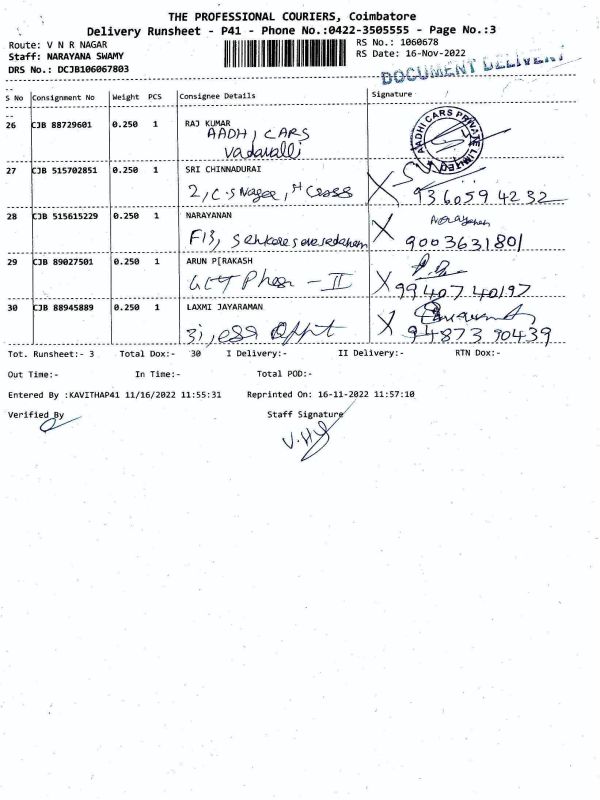 THE PROFESSIONAL COURIERS, Coimbatore
Delivery Runsheet - P41 - Phone No.:0422-3505555 - Page No.:3
Route: V N R NAGAR RS No.: 1060678
Staff: NARAYANA SWAMY RS Date: 16-Nov-2022
DRS No.: DCJB106067803
DOCUMENT DELIVERY
S No Consignment No Weight PCS Consignee Details Signature
26 CJB 88729601 0.250 1 RAJ KUMAR
AADHI CARS
Vadavalli
AADHI CARS PRIVATE LIMITED
27 CJB 515702851 0.250 1 SRI CHINNADURAI
2, C.S Nagar, Cross X 936059 4232
28 CJB 515615229 0.250 1 NARAYANAN
F13, X 9003631801
29 CJB 89027501 0.250 1 ARUN P[RAKASH
- II X 9940740197
30 CJB 88945889 0.250 1 LAXMI JAYARAMAN
X 9487390439
Tot. Runsheet:- 3 Total Dox:- 30 I Delivery:- II Delivery:- RTN Dox:-
Out Time:- In Time:- Total POD:-
Entered By :KAVITHAP41 11/16/2022 11:55:31 Reprinted On: 16-11-2022 11:57:10
Verified By Staff Signature